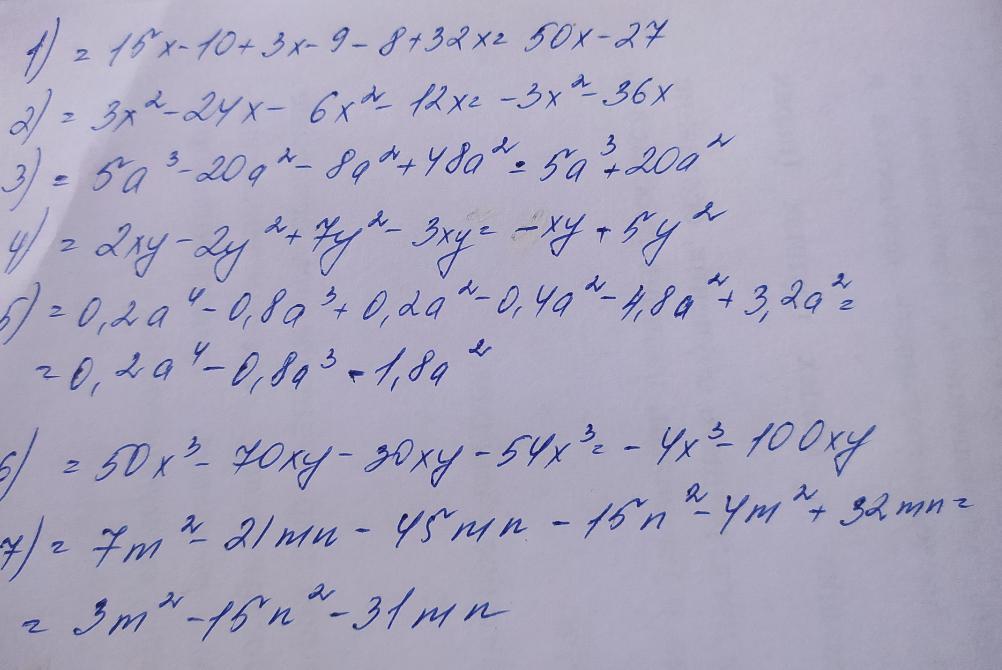 1) = 15x-10+3x-9-8+32x= 50x-27
2) = 3x²-24x- 6x²-12x= -3x²-36x
3) = 5a³-20a²-8a²+48a² = 5a³+20a²
4) = 2xy-2y²+7y²-3xy= -xy+5y²
5) = 0,2a⁴-0,8a³+0,2a²-0,4a²-4,8a²+3,2a²=
= 0,2a⁴-0,8a³-1,8a²
6) = 50x³-70xy-30xy-54x³= -4x³-100xy
7) = 7m²-21mn-45mn-15n²-4m²+32mn=
= 3m²-15n²-31mn